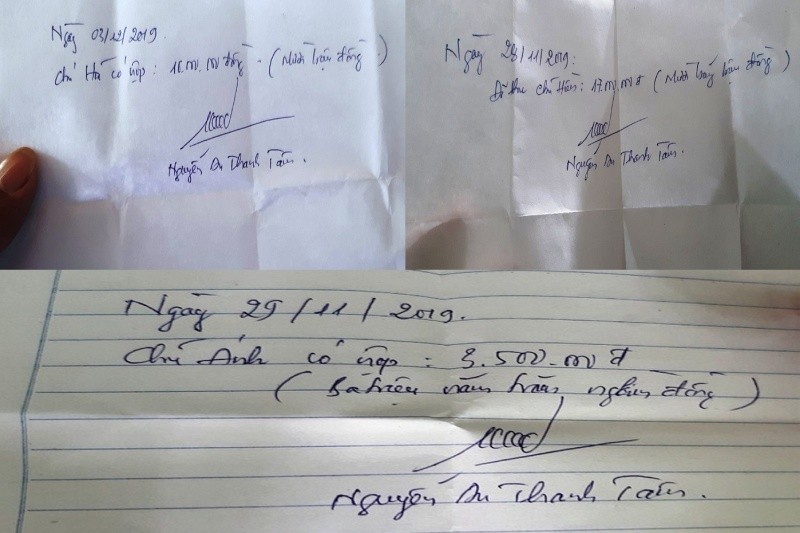 Ngày 03/12/2019.
Chị Hà có nộp : 10.000.000 đồng. (Mười triệu đồng)
Nguyễn An Thanh Tâm.
Ngày 28/11/2019:
Đã thu chị Hiền: 17.000.000đ (Mười bảy triệu đồng)
Nguyễn An Thanh Tâm.
Ngày 29/11/2019.
Chị Ánh có nộp : 3.500.000 đ
(Ba triệu năm trăm nghìn đồng)
Nguyễn An Thanh Tâm.